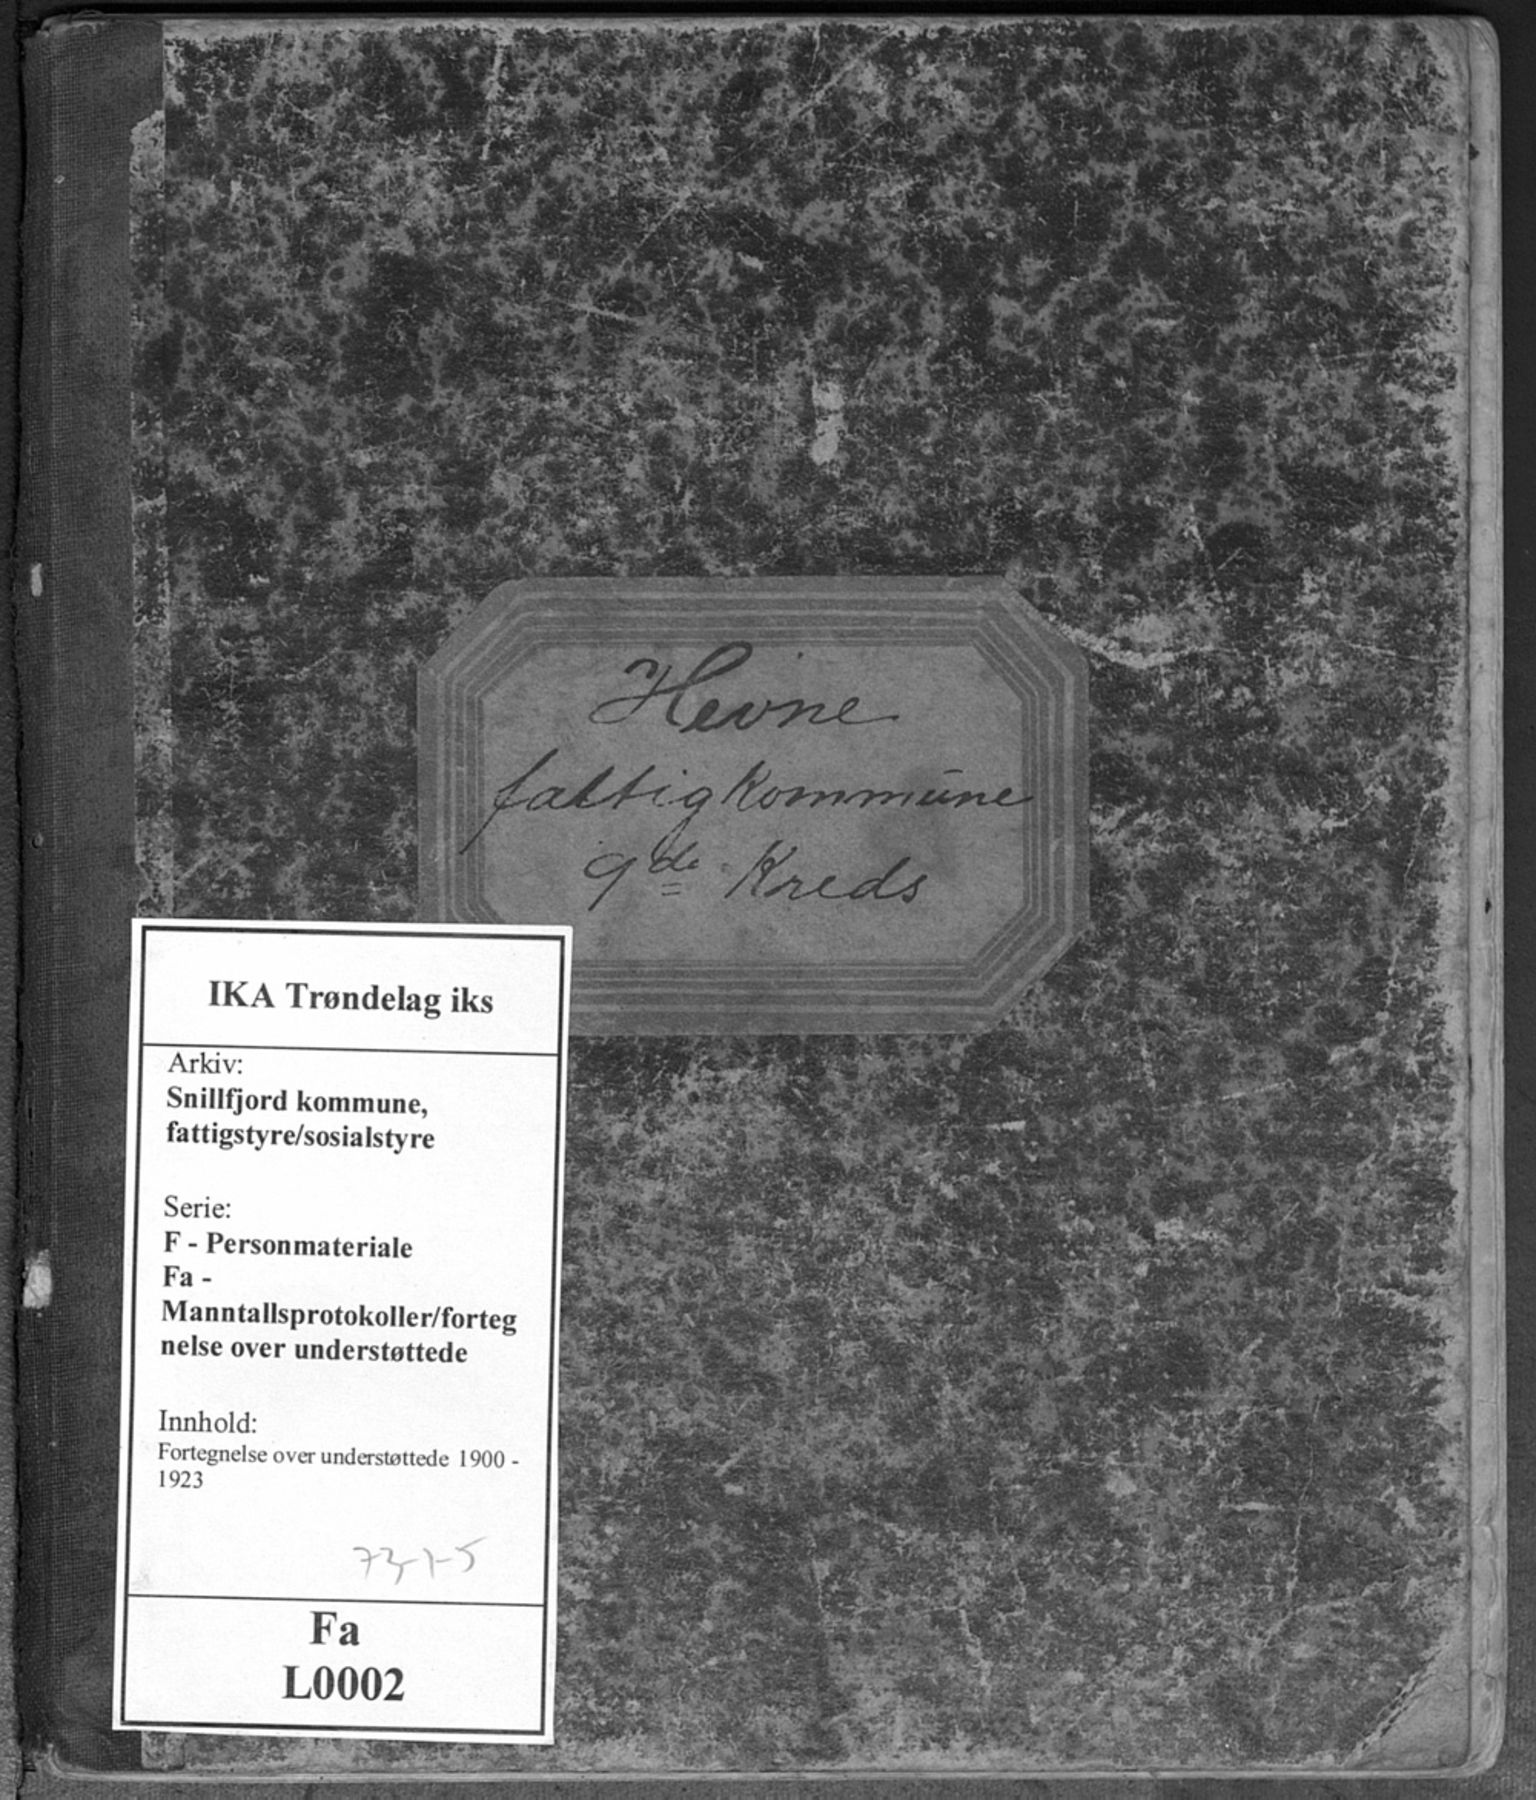 Hevne
fattigkommune
9de Kreds
IKA Trøndelag iks
Arkiv:
Snillfjord kommune,
fattigstyre/sosialstyre
Serie:
F - Personmateriale
Fa -
Manntallsprotokoller/forteg
nelse over understøttede
Innhold:
Fortegnelse over understøttede 1900 -
1923
73-1-5
Fa
L0002